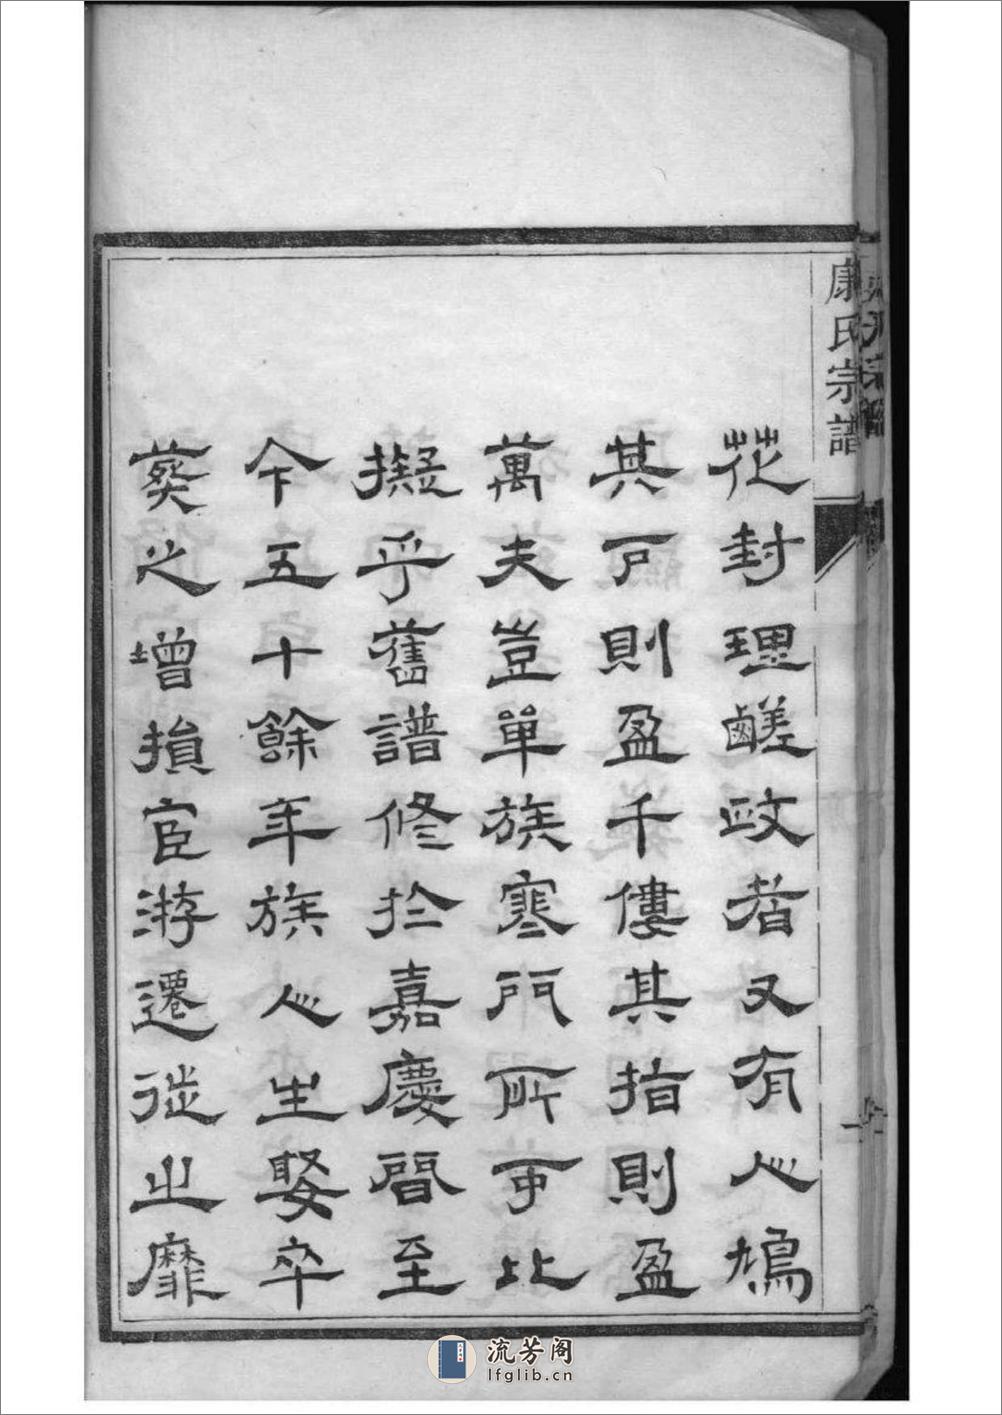 康氏宗譜
花封理鹺政者又有人鳩
其戶則盈千僂其指則盈
萬夫豈單族寒門所可比
擬乎舊譜修於嘉慶間至
今五十餘年族人生娶卒
葬之增損宦游遷徙之靡
流芳阁
lfglib.cn